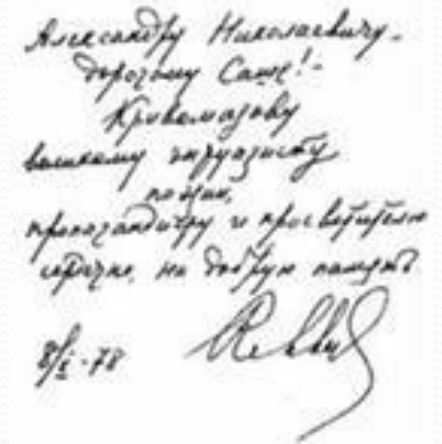 Александру Николаевичу -
дорогому Саше! -
Кривомазову
великому энтузиасту
поэзии,
пропагандисту и просветителю
сердечно, на добрую память
8/X - 78